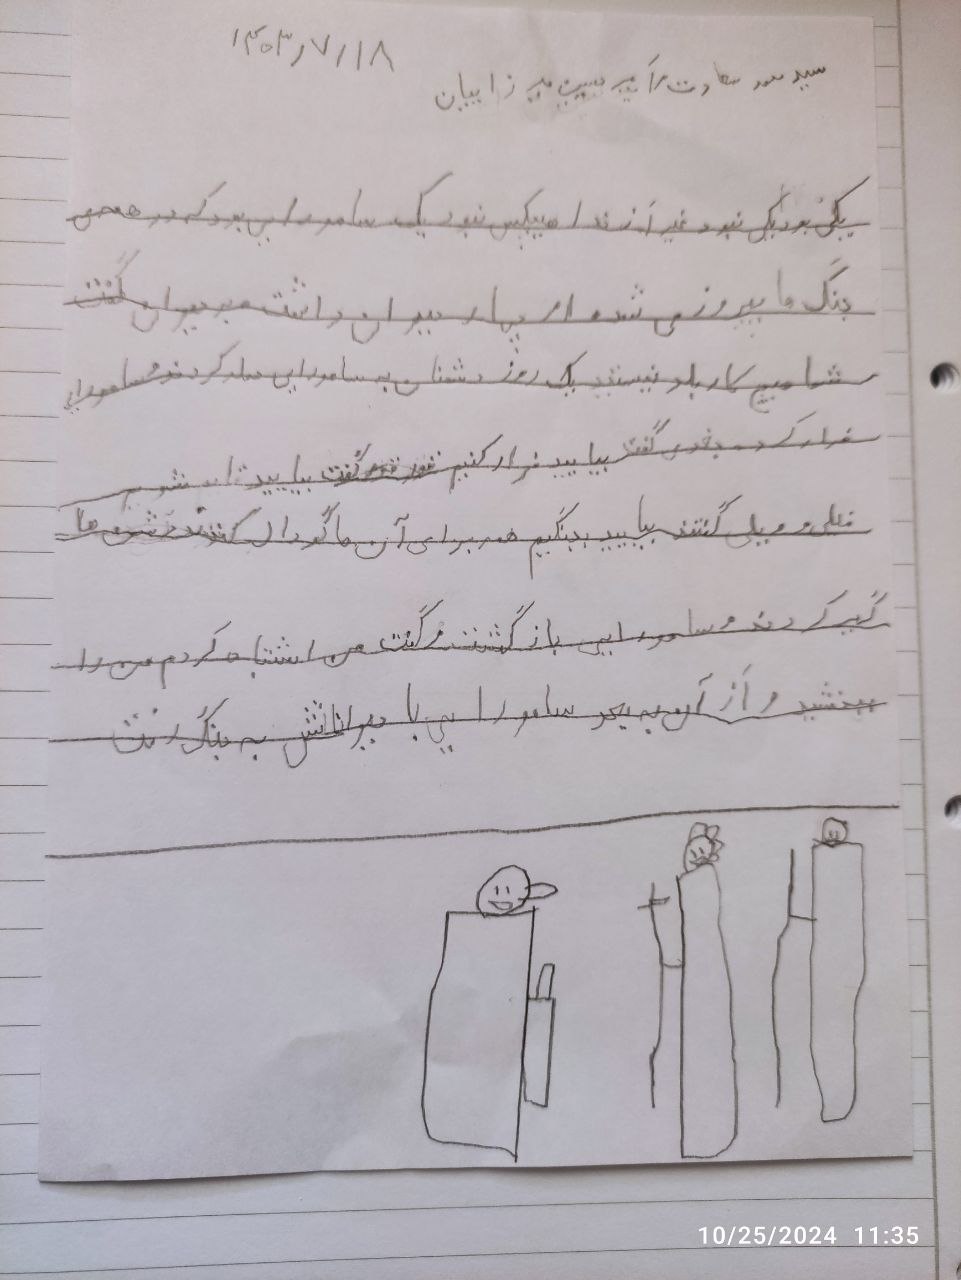 ۱۴۰۳/۷/۱۸
سید سعادت امیر حسین میرزاییان
یکی بود یکی نبود غیر از خدا هیچکس نبود یک سامورایی بود که در همه‌ی
جنگ ها پیروز می شد او چهار حیوان داشت به حیوان گفت
شما هیچ کار بلد نیستید یک روز دشمنان به سامورایی حمله کردند و سامورایی
فرار کرد جغد گفت بیایید فرار کنیم گفت بیایید شویم
گفتند بیایید بجنگیم همه برای آن ها گودال کندند دشمن ها
گیر کردند و سامورایی بازگشت و گفت من اشتباه کردم من را
ببخشید و از آن به بعد سامورایی با حیواناتش به جنگ رفت
10/25/2024 11:35